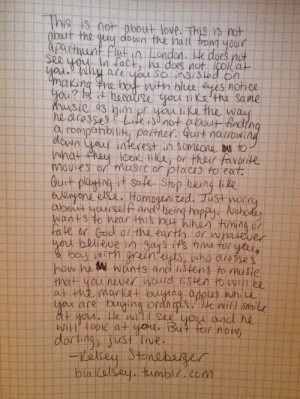 This is not about love. This is not
about the guy down the hall from your
apartment flat in London. He does not
see you. In fact, he does not look at
you. Why are you so insisted on
making the boy with blue eyes notice
you? Is it because you like the same
music as him or you like the way
he dresses? Life is not about finding
a compatibility partner. Quit narrowing
down your interest in someone to
what they look like, or their favorite
movies or music or places to eat.
Quit playing it safe. Stop being like
everyone else. Homogenized. Just worry
about yourself and being happy. Nobody
wants to hear this but when timing or
fate or God or the earth or whatever
you believe in says it's time for you,
a boy with green eyes, who dresses
how he wants and listens to music
that you never would listen to will be
at the market buying apples while
you are buying oranges. He will smile
at you. He will see you and he
will look at you. But for now,
darling, just live.
-Kelsey Stoneberger
blakelsey.tumblr.com